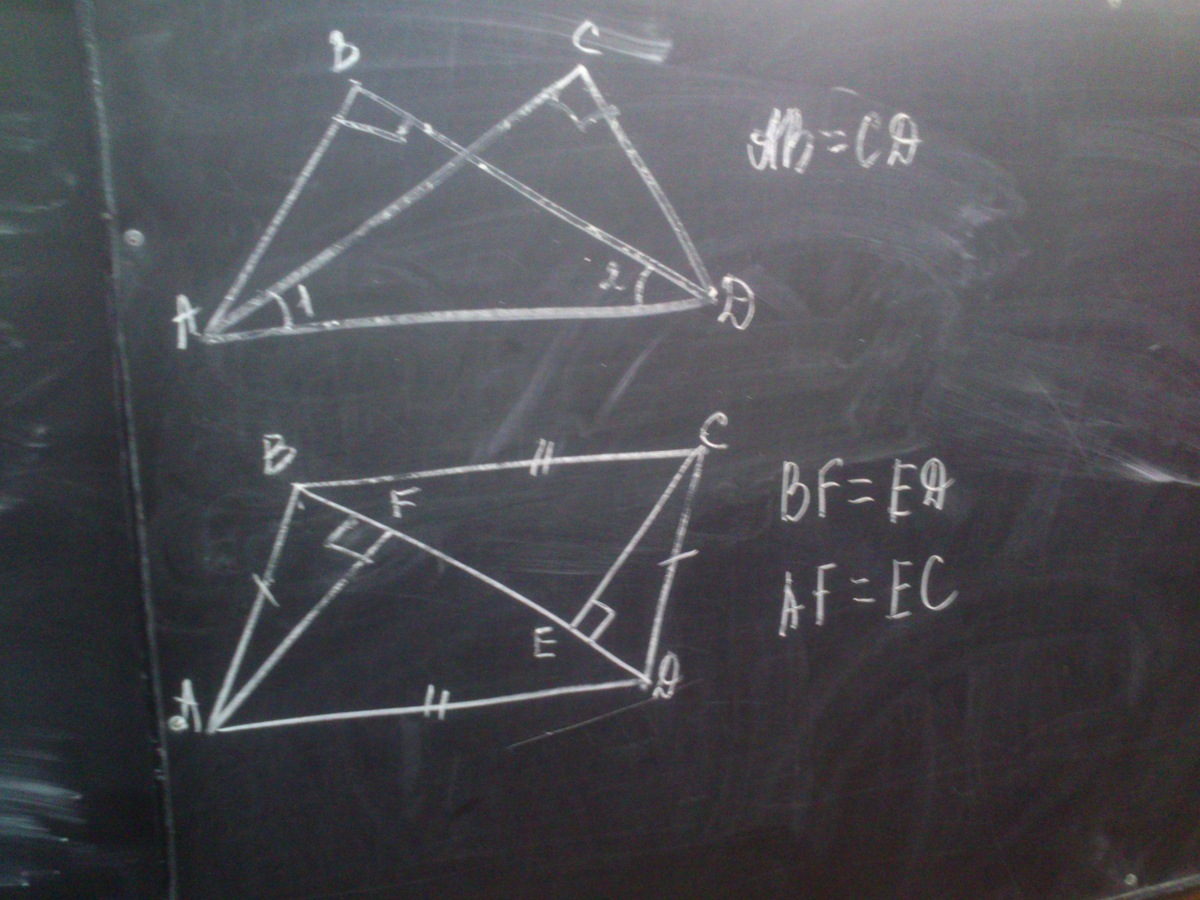 B C
AB=CD
A 1 2 D
B C
F
BF=ED
AF=EC
E
A D